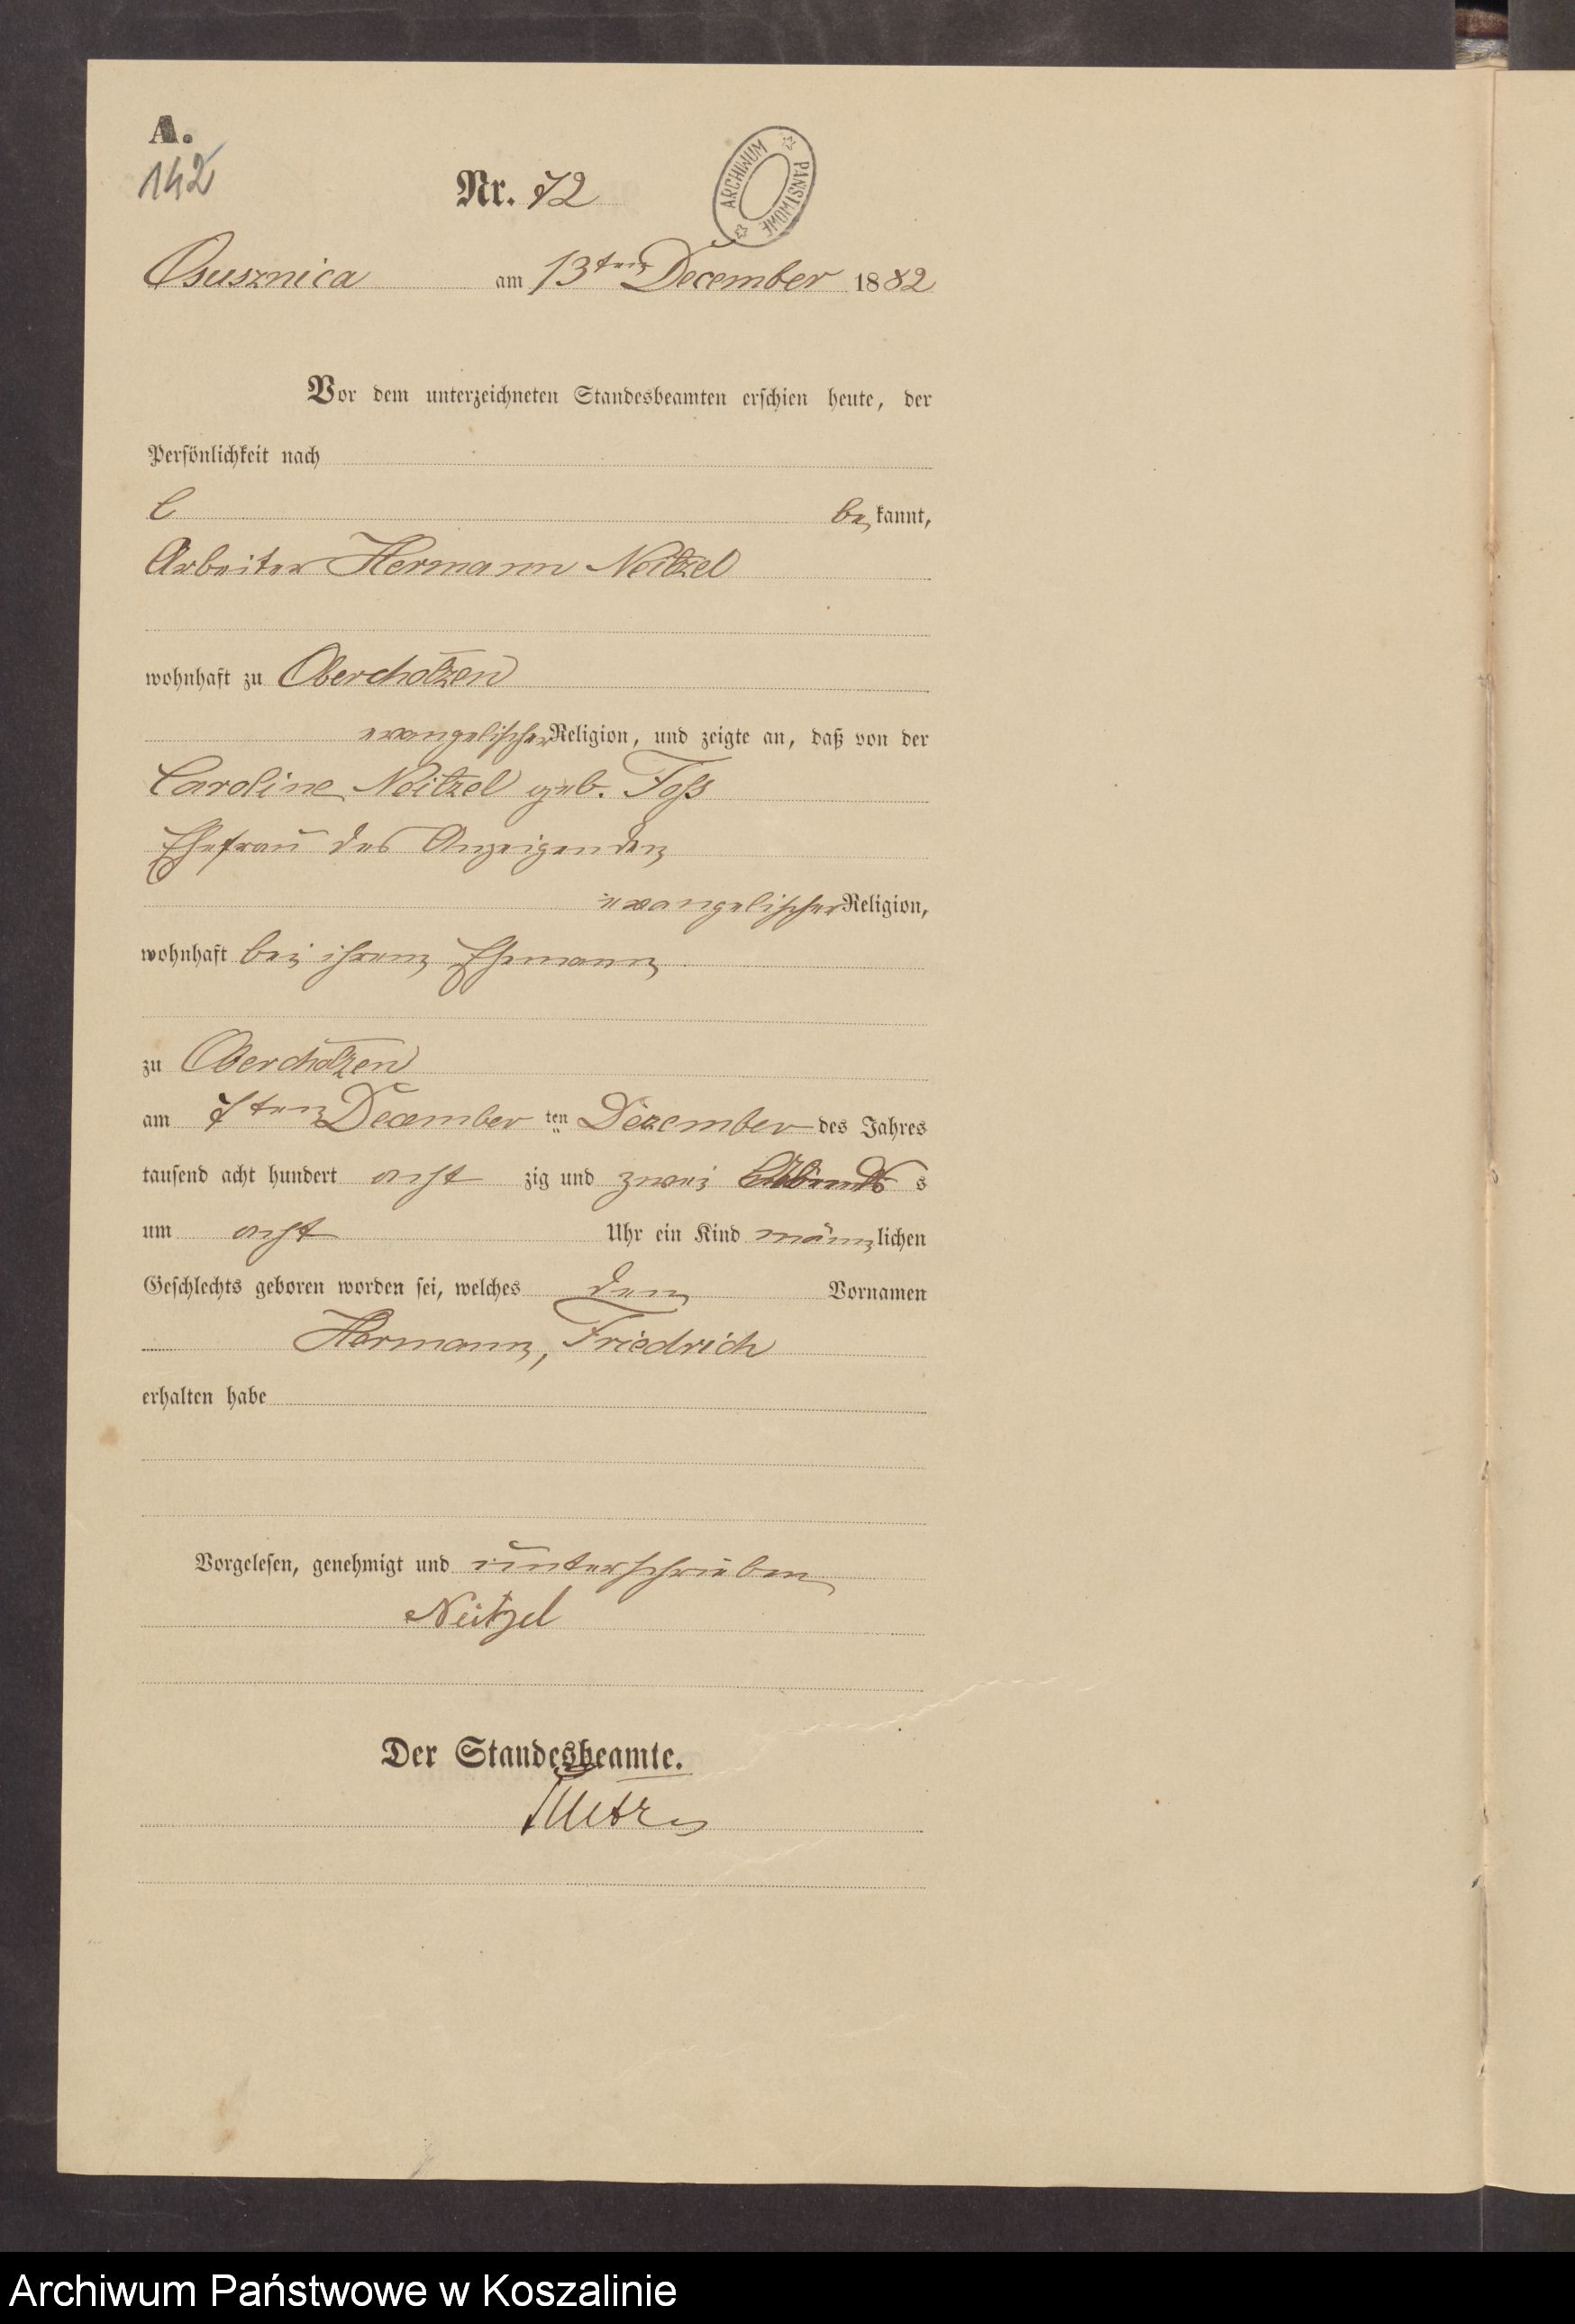 A.
142
Nr. 72
ARCHIWUM PAŃSTWOWE
Osusznica am 13ten December 1882
Vor dem unterzeichneten Standesbeamten erschien heute, der
Persönlichkeit nach
be kannt,
Arbeiter Hermann Neitzel
wohnhaft zu Oberchotzen
evangelischer Religion, und zeigte an, daß von der
Caroline Neitzel geb. Foss
Ehefrau des Anzeigenden
evangelischer Religion,
wohnhaft bei ihrem Ehemann
zu Oberchotzen
am 7ten December ten Dezember des Jahres
tausend acht hundert acht zig und zwei Abends s
um acht Uhr ein Kind männ lichen
Geschlechts geboren worden sei, welches den Vornamen
Hermann, Friedrich
erhalten habe
Vorgelesen, genehmigt und unterschrieben
Neitzel
Der Standesbeamte.
Archiwum Państwowe w Koszalinie